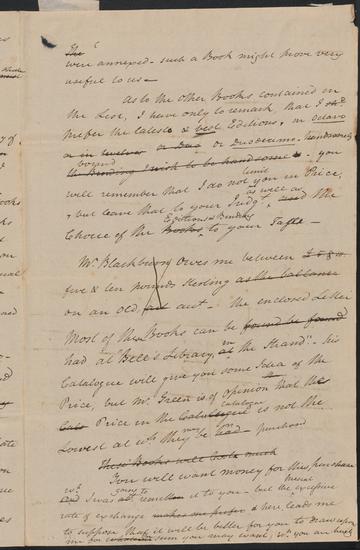 were annexed - such a Book might prove very
useful to us -
As to the other Books contained in
the List, I have only to remark, that I
prefer the latest & best Editions, in octavo
or in twelves or Duo or Duodecimo, handsomely
bound
the Binding I wish to be handsome - you
limit
will remember that I do not you in Price,
as well as
but leave that to your Judgt, and the
Editions & Binding
Choice of the Books to your Taste -
Mr. Blackburn owes me between
five & ten pounds Sterling as the ballance
on an old acct - the enclosed Letter
Most of the Books can be found be found
had at Bell's Library, in at the Strand - his
Catalogue will give you some Idea of the
Price, but Mr. Green is of opinion that the
catalogue
Price in the Catalogue is not the
may be
Lowest at wh. they had - purchased
These Books will
You will want money for this purchase
going to
I was it to you - but the excessive
rate of exchange makes me prefer here, leads me
to suppose that it will be better for you to draw upon
me for sum you may want,